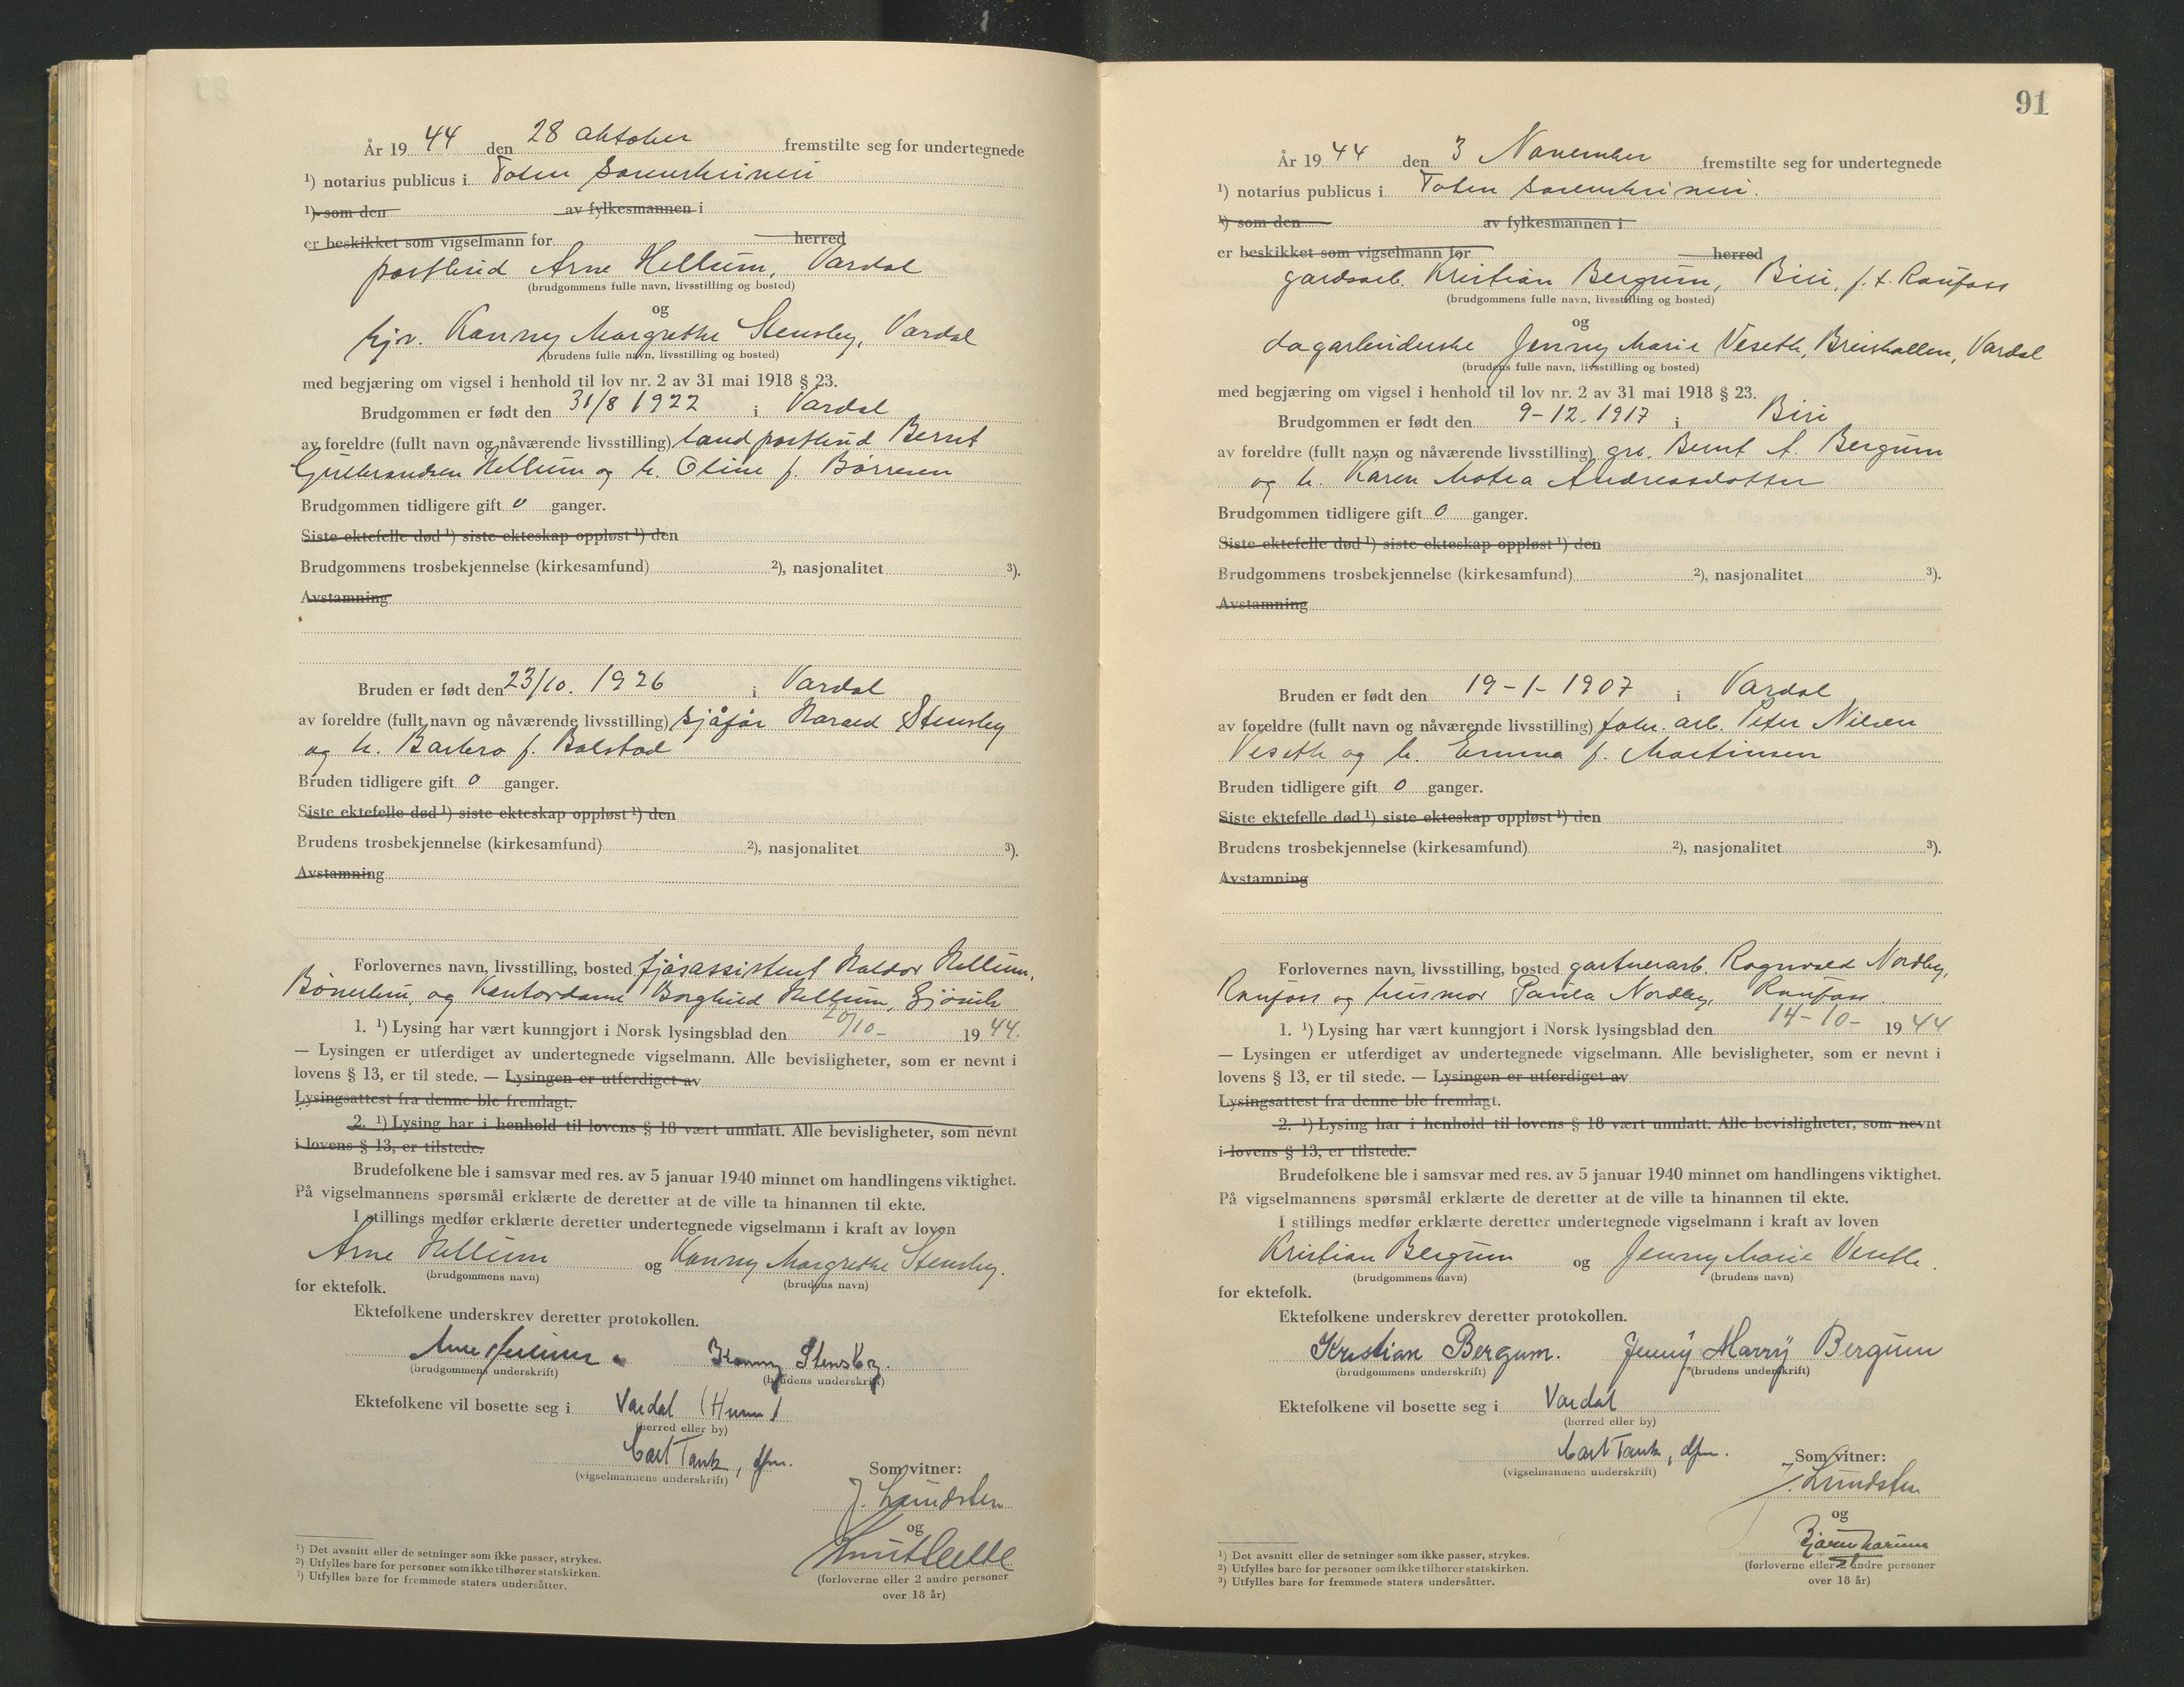 År 19 44 den 28 oktober fremstilte seg for undertegnede
¹) notarius publicus i Toten Sorenskriveri
¹) som den av fylkesmannen i
er beskikket som vigselmann for herred
postbud Arne Hellum, Vardal
(brudgommens fulle navn, livsstilling og bosted)
og
hjv. Kanny Margrethe Stensby, Vardal
(brudens fulle navn, livsstilling og bosted)
med begjæring om vigsel i henhold til lov nr. 2 av 31 mai 1918 § 23.
Brudgommen er født den 31/8 1922 i Vardal
av foreldre (fullt navn og nåværende livsstilling) landpostbud Bernt
Gulbrandsen Hellum og h. Oline f. Børresen
Brudgommen tidligere gift 0 ganger.
Siste ektefelle død ¹) siste ekteskap oppløst ¹) den
Brudgommens trosbekjennelse (kirkesamfund) ²), nasjonalitet ³).
Avstamning
Bruden er født den 23/10. 1926 i Vardal
av foreldre (fullt navn og nåværende livsstilling) sjåfør Harald Stensby
og h. Barbro f. Bolstad
Bruden tidligere gift 0 ganger.
Siste ektefelle død ¹) siste ekteskap oppløst ¹) den
Brudens trosbekjennelse (kirkesamfund) ²), nasjonalitet ³).
Avstamning
Forlovernes navn, livsstilling, bosted fjøsassistent Haldor Hellum,
og Kontordame Borghild Hellum, Gjøvik
1. ¹) Lysing har vært kunngjort i Norsk lysingsblad den 20/10- 19 44.
— Lysingen er utferdiget av undertegnede vigselmann. Alle bevisligheter, som er nevnt i
lovens § 13, er til stede. — Lysingen er utferdiget av
Lysingsattest fra denne ble fremlagt.
2. ¹) Lysing har i henhold til lovens § 18 vært unnlatt. Alle bevisligheter, som nevnt
i lovens § 13, er tilstede.
Brudefolkene ble i samsvar med res. av 5 januar 1940 minnet om handlingens viktighet.
På vigselmannens spørsmål erklærte de deretter at de ville ta hinannen til ekte.
I stillings medfør erklærte deretter undertegnede vigselmann i kraft av loven
Arne Hellum og Kanny Margrethe Stensby.
(brudgommens navn) (brudens navn)
for ektefolk.
Ektefolkene underskrev deretter protokollen.
Arne Hellum Kanny Stensby.
(brudgommens underskrift) (brudens underskrift)
Ektefolkene vil bosette seg i Vardal (Hunn)
(herred eller by)
Carl Tank, dfm.
(vigselmannens underskrift) Som vitner:
J. Lundsten
og
(forloverne eller 2 andre personer
over 18 år)
¹) Det avsnitt eller de setninger som ikke passer, strykes.
²) Utfylles bare for personer som ikke tilhører statskirken.
³) Utfylles bare for fremmede staters undersåtter.
91
År 19 44 den 3 November fremstilte seg for undertegnede
¹) notarius publicus i Toten sorenskriveri.
¹) som den av fylkesmannen i
er beskikket som vigselmann for herred
gardsarb. Kristian Bergum, Biri, f.t. Raufoss
(brudgommens fulle navn, livsstilling og bosted)
og
dagarbeiderske Jenny Marie Veseth, Breiskallen, Vardal
(brudens fulle navn, livsstilling og bosted)
med begjæring om vigsel i henhold til lov nr. 2 av 31 mai 1918 § 23.
Brudgommen er født den 9-12-1917 i Biri
av foreldre (fullt navn og nåværende livsstilling) grb. Bernt A. Bergum
og h. Karen Matea Andreasdotter
Brudgommen tidligere gift 0 ganger.
Siste ektefelle død ¹) siste ekteskap oppløst ¹) den
Brudgommens trosbekjennelse (kirkesamfund) ²), nasjonalitet ³).
Avstamning
Bruden er født den 19-1-1907 i Vardal
av foreldre (fullt navn og nåværende livsstilling) fabr. arb. Peter Nilsen
Veseth og h. Emma f. Martinsen
Bruden tidligere gift 0 ganger.
Siste ektefelle død ¹) siste ekteskap oppløst ¹) den
Brudens trosbekjennelse (kirkesamfund) ²), nasjonalitet ³).
Avstamning
Forlovernes navn, livsstilling, bosted gartnerarb. Ragnvald Nordby,
Raufoss og husmor Paula Nordby, Raufoss.
1. ¹) Lysing har vært kunngjort i Norsk lysingsblad den 14-10- 19 44
— Lysingen er utferdiget av undertegnede vigselmann. Alle bevisligheter, som er nevnt i
lovens § 13, er til stede. — Lysingen er utferdiget av
Lysingsattest fra denne ble fremlagt.
2. ¹) Lysing har i henhold til lovens § 18 vært unnlatt. Alle bevisligheter, som nevnt
i lovens § 13, er tilstede.
Brudefolkene ble i samsvar med res. av 5 januar 1940 minnet om handlingens viktighet.
På vigselmannens spørsmål erklærte de deretter at de ville ta hinannen til ekte.
I stillings medfør erklærte deretter undertegnede vigselmann i kraft av loven
Kristian Bergum og Jenny Marie Veseth.
(brudgommens navn) (brudens navn)
for ektefolk.
Ektefolkene underskrev deretter protokollen.
Kristian Bergum. Jenny Marry Bergum
(brudgommens underskrift) (brudens underskrift)
Ektefolkene vil bosette seg i Vardal
(herred eller by)
Carl Tank, dfm.
(vigselmannens underskrift) Som vitner:
J. Lundsten
og
(forloverne eller 2 andre personer
over 18 år)
¹) Det avsnitt eller de setninger som ikke passer, strykes.
²) Utfylles bare for personer som ikke tilhører statskirken.
³) Utfylles bare for fremmede staters undersåtter.